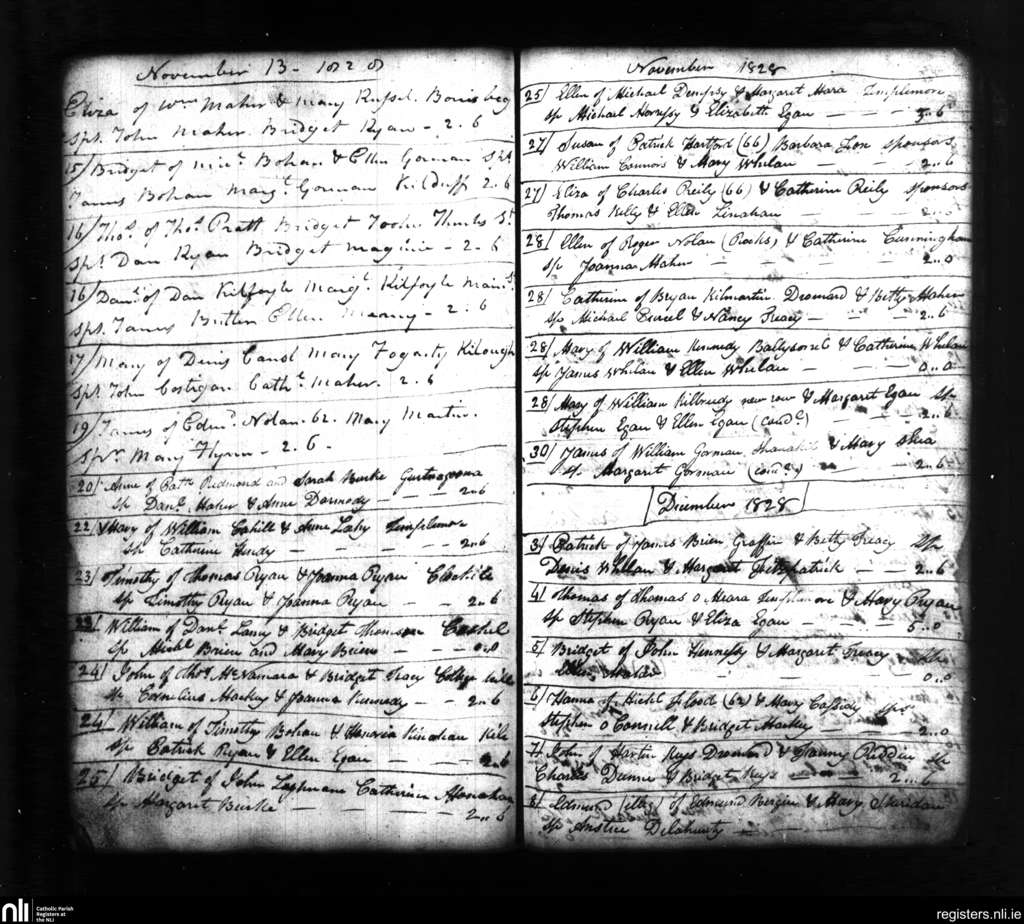 November 13 - 1828
Eliza of Wm Maher & Mary Russel. Borrisbeg
sps. John Maher. Bridget Ryan - 2.6
15/ Bridget of Mic. Bohan & Ellen Gorman
James Bohan Margt. Gorman Kilduff 2.6
16/ Thos. of Thos. Pratt Bridget Thurles St
sps. Dan Ryan Bridget - 2.6
16/ Danl. of Dan Kilfoyle Margt. Kilfoyle
sps. James Butler Ellen Meany - 2.6
17/ Mary of Denis Cantl Mary Fogarty Kilough
sps. John Costigan. Cathe. Maher. 2.6
19/ James of Edmd. Nolan. 62. Mary Martin.
spr. Mary Flynn - 2.6.
20/ Anne of Patk. Redmond and Sarah Burke
sp Danl. Maher & Anne Darmody - 2..6
22 Mary of William Cahill & Anne Lahy Templemor
sp Catherine Hendy - - - - 2..6
23/ Timothy of Thomas Ryan & Joanna Ryan
sp Timothy Ryan & Joanna Ryan - - 2..6
23/ William of Danl. Lancy & Bridget Thomson Cashel
sp Michl Brien and Mary Brien - - 0..0
24/ John of Thos. McNamara & Bridget Tracy College
sp Cornelius Mackey & Joanna Kennedy - 2..6
24/ William of Timothy Bohan & Honoria Kinahan Kile
sp Patrick Ryan & Ellen Egan - - 2..6
25/ Bridget of John Lapmann Catherine Hanahan
sp Margaret Burke - - - - 2..6
November 1828
25/ Ellen of Michael Dempsy & Margaret Mara Templemore
sp Michael Hennessy & Elizabeth Egan - - - 5..6
27/ Susan of Patrick Hartford (66) Barbara sponsors
William Connors & Mary Whelan - - 2..6
27/ Eliza of Charles Reily (66) & Catherine Reily sponsors
Thomas Kelly & Ellen Linahan - -
28/ Ellen of Roger Nolan (Rocks) & Catherine Cunningham
sp Joanna Maher - - - 2..0
28/ Catherine of Bryan Kilmartin Dromard & Betty Maher
sp Michael & Nancy Treacy - - 2..6
28/ Mary of William Kennedy Ballysorrel & Catherine Whelan
sp James Whelan & Ellen Whelan - - 0..0
28/ Mary of William new row & Margaret Egan sp
Stephen Egan & Ellen Egan (Cond.) - - 2..6
30/ James of William Gorman & Mary Shea
sp Margaret Gorman (cond.) - - 2..6
December 1828
3/ Patrick of James Brien Graffin & Betty Treacy sp
Denis Whelan & Margaret Fitzpatrick - - 2..6
4/ Thomas of Thomas o Meara Templemore & Mary Ryan
sp Stephen Ryan & Eliza Egan - - 5..0
5/ Bridget of John Hennessy & Margaret Treacy
0..0
6/ Hanna of Michl Flood (62) & Mary Cassidy spr
Stephen o Connell & Bridget Mackey - - 2..0
7/ John of Martin Keys Dromard & Fanny sp
Charles Dunne & Bridget Keys - 2..6
8/ Edmund (illeg) of Edmund Bergin & Mary Sheridan
sp Anstice Delahunty -
nli
Catholic Parish
Registers at
the NLI
registers.nli.ie